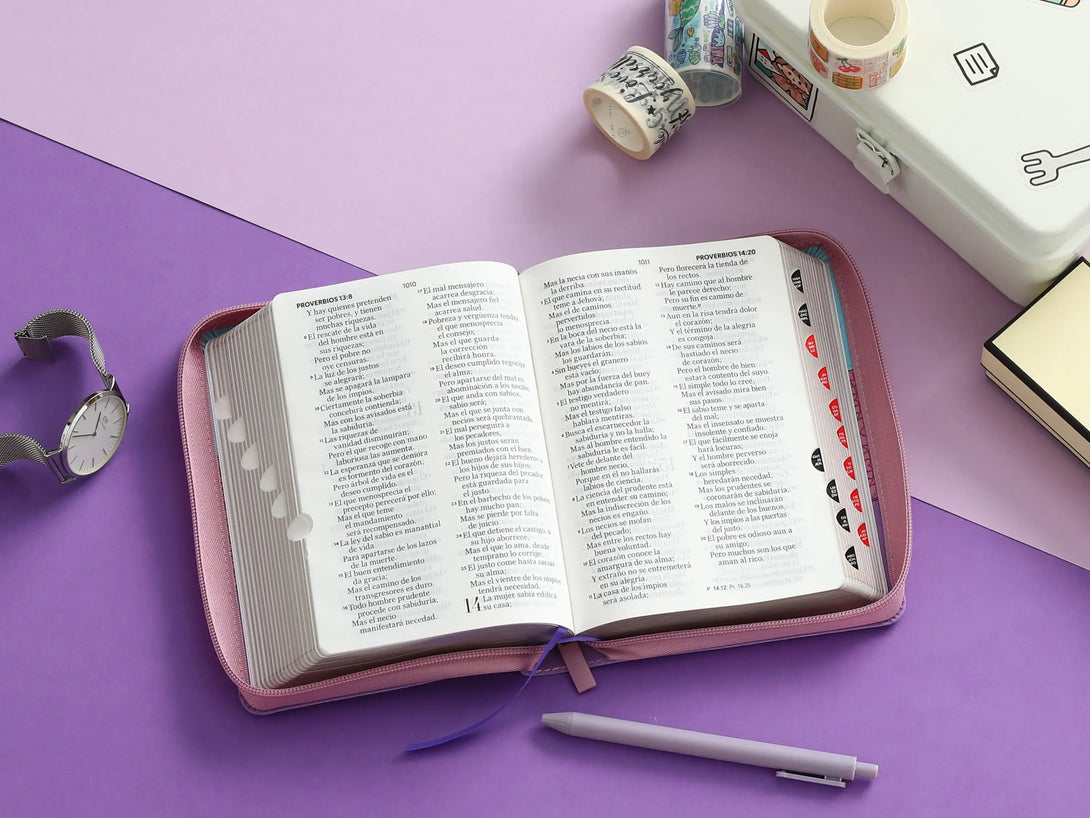 PROVERBIOS 13:8
1010
Y hay quienes pretenden
ser pobres, y tienen
muchas riquezas.
8 El rescate de la vida
del hombre está en
sus riquezas;
Pero el pobre no
oye censuras.
9 La luz de los justos
se alegrará;
Mas se apagará la lámpara
de los impíos.
10 Ciertamente la soberbia
concebirá contienda;
Mas con los avisados está
la sabiduría.
11 Las riquezas de
vanidad disminuirán;
Pero el que recoge con mano
laboriosa las aumenta.
12 La esperanza que se demora
es tormento del corazón;
Pero árbol de vida es el
deseo cumplido.
13 El que menosprecia el
precepto perecerá por ello;
Mas el que teme
el mandamiento
será recompensado.
14 La ley del sabio es manantial
de vida
Para apartarse de los lazos
de la muerte.
15 El buen entendimiento
da gracia;
Mas el camino de los
transgresores es duro.
16 Todo hombre prudente
procede con sabiduría;
Mas el necio
manifestará necedad.
17 El mal mensajero
acarrea desgracia;
Mas el mensajero fiel
acarrea salud.
18 Pobreza y vergüenza tendrá
el que menosprecia
el consejo;
Mas el que guarda
la corrección
recibirá honra.
19 El deseo cumplido regocija
el alma;
Pero apartarse del mal es
abominación a los necios.
20 El que anda con sabios,
sabio será;
Mas el que se junta con
necios será quebrantado.
21 El mal perseguirá a
los pecadores,
Mas los justos serán
premiados con el bien.
22 El bueno dejará herederos a
los hijos de sus hijos;
Pero la riqueza del pecador
está guardada para
el justo.
23 En el barbecho de los pobres
hay mucho pan;
Mas se pierde por falta
de juicio.
24 El que detiene el castigo, a
su hijo aborrece;
Mas el que lo ama, desde
temprano lo corrige.
25 El justo come hasta saciar
su alma;
Mas el vientre de los impíos
tendrá necesidad.
14 La mujer sabia edifica
su casa;
1011
PROVERBIOS 14:20
Mas la necia con sus manos
la derriba.
2 El que camina en su rectitud
teme a Jehová;
Mas el de caminos
pervertidos
lo menosprecia.
3 En la boca del necio está la
vara de la soberbia;
Mas los labios de los sabios
los guardarán.
4 Sin bueyes el granero
está vacío;
Mas por la fuerza del buey
hay abundancia de pan.
5 El testigo verdadero
no mentirá;
Mas el testigo falso
hablará mentiras.
6 Busca el escarnecedor la
sabiduría y no la halla;
Mas al hombre entendido la
sabiduría le es fácil.
7 Vete de delante del
hombre necio,
Porque en él no hallarás
labios de ciencia.
8 La ciencia del prudente está
en entender su camino;
Mas la indiscreción de los
necios es engaño.
9 Los necios se mofan
del pecado;
Mas entre los rectos hay
buena voluntad.
10 El corazón conoce la
amargura de su alma;
Y extraño no se entremeterá
en su alegría.
11 La casa de los impíos
será asolada;
Pero florecerá la tienda de
los rectos.
12 Hay camino que al hombre
le parece derecho;
Pero su fin es camino de
muerte.
13 Aun en la risa tendrá dolor
el corazón;
Y el término de la alegría
es congoja.
14 De sus caminos será
hastiado el necio
de corazón;
Pero el hombre de bien
estará contento del suyo.
15 El simple todo lo cree;
Mas el avisado mira bien
sus pasos.
16 El sabio teme y se aparta
del mal;
Mas el insensato se muestra
insolente y confiado.
17 El que fácilmente se enoja
hará locuras;
Y el hombre perverso
será aborrecido.
18 Los simples
heredarán necedad;
Mas los prudentes se
coronarán de sabiduría.
19 Los malos se inclinarán
delante de los buenos,
Y los impíos a las puertas
del justo.
20 El pobre es odioso aun a
su amigo;
Pero muchos son los que
aman al rico.
14.12: Pr. 16.25.